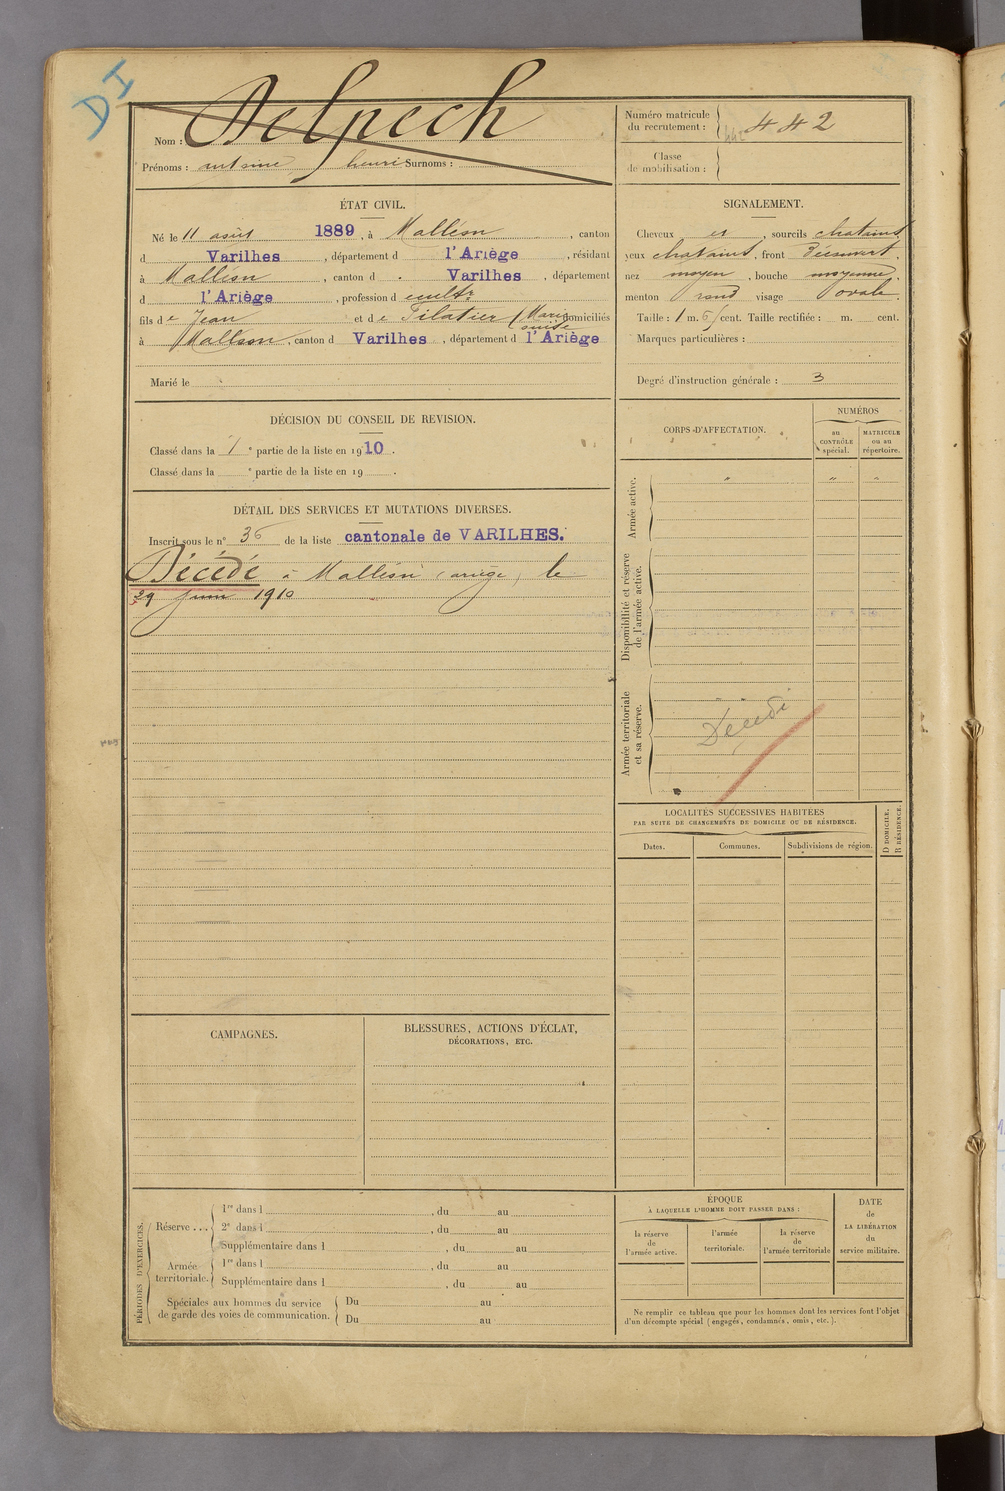 DI
Nom : Delpech
Prénoms : antoine henri Surnoms :
Numéro matricule du recrutement : 442
Classe de mobilisation :
ÉTAT CIVIL.
Né le 11 août 1889, à Malléon, canton
d Varilhes, département d l'Ariège, résidant
à Malléon, canton d Varilhes, département
d l'Ariège, profession d
fils de Jean et de Pilatier (Marie domiciliés
à Malléon, canton d Varilhes, département d l'Ariège
Marié le
SIGNALEMENT.
Cheveux et, sourcils chatains,
yeux chatains, front découvert,
nez moyen, bouche moyenne,
menton rond visage ovale.
Taille : 1 m. cent. Taille rectifiée : m. cent.
Marques particulières :
Degré d'instruction générale : 3
DÉCISION DU CONSEIL DE REVISION.
Classé dans la 1e partie de la liste en 1910.
Classé dans la e partie de la liste en 19 .
DÉTAIL DES SERVICES ET MUTATIONS DIVERSES.
Inscrit sous le n° 36 de la liste cantonale de VARILHES.
Décédé à Malléon (ariège) le
29 juin 1910
CORPS D'AFFECTATION.
NUMÉROS
au CONTRÔLE spécial.
MATRICULE ou au répertoire.
Armée active.
" " "
Disponibilité et réserve de l'armée active.
Armée territoriale et sa réserve.
Décédé
LOCALITÉS SUCCESSIVES HABITÉES
PAR SUITE DE CHANGEMENTS DE DOMICILE OU DE RÉSIDENCE.
Dates.
Communes.
Subdivisions de région.
D DOMICILE.
R RÉSIDENCE.
CAMPAGNES.
BLESSURES, ACTIONS D'ÉCLAT,
DÉCORATIONS, ETC.
PÉRIODES D'EXERCICES.
Réserve ...
1re dans l , du au
2e dans l , du au
Supplémentaire dans l , du au
Armée territoriale.
1re dans l , du au
Supplémentaire dans l , du au
Spéciales aux hommes du service
de garde des voies de communication.
Du au
Du au
ÉPOQUE
À LAQUELLE L'HOMME DOIT PASSER DANS :
la réserve de l'armée active.
l'armée territoriale.
la réserve de l'armée territoriale
DATE de LA LIBÉRATION du service militaire.
Ne remplir ce tableau que pour les hommes dont les services font l'objet
d'un décompte spécial (engagés, condamnés, omis, etc.).